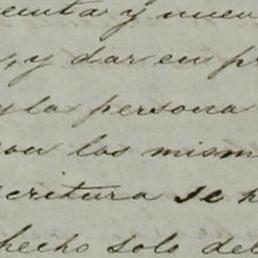 cuenta y nuev
, y dar en pr
y la persona
con las mism
critura se h
hecho solo del